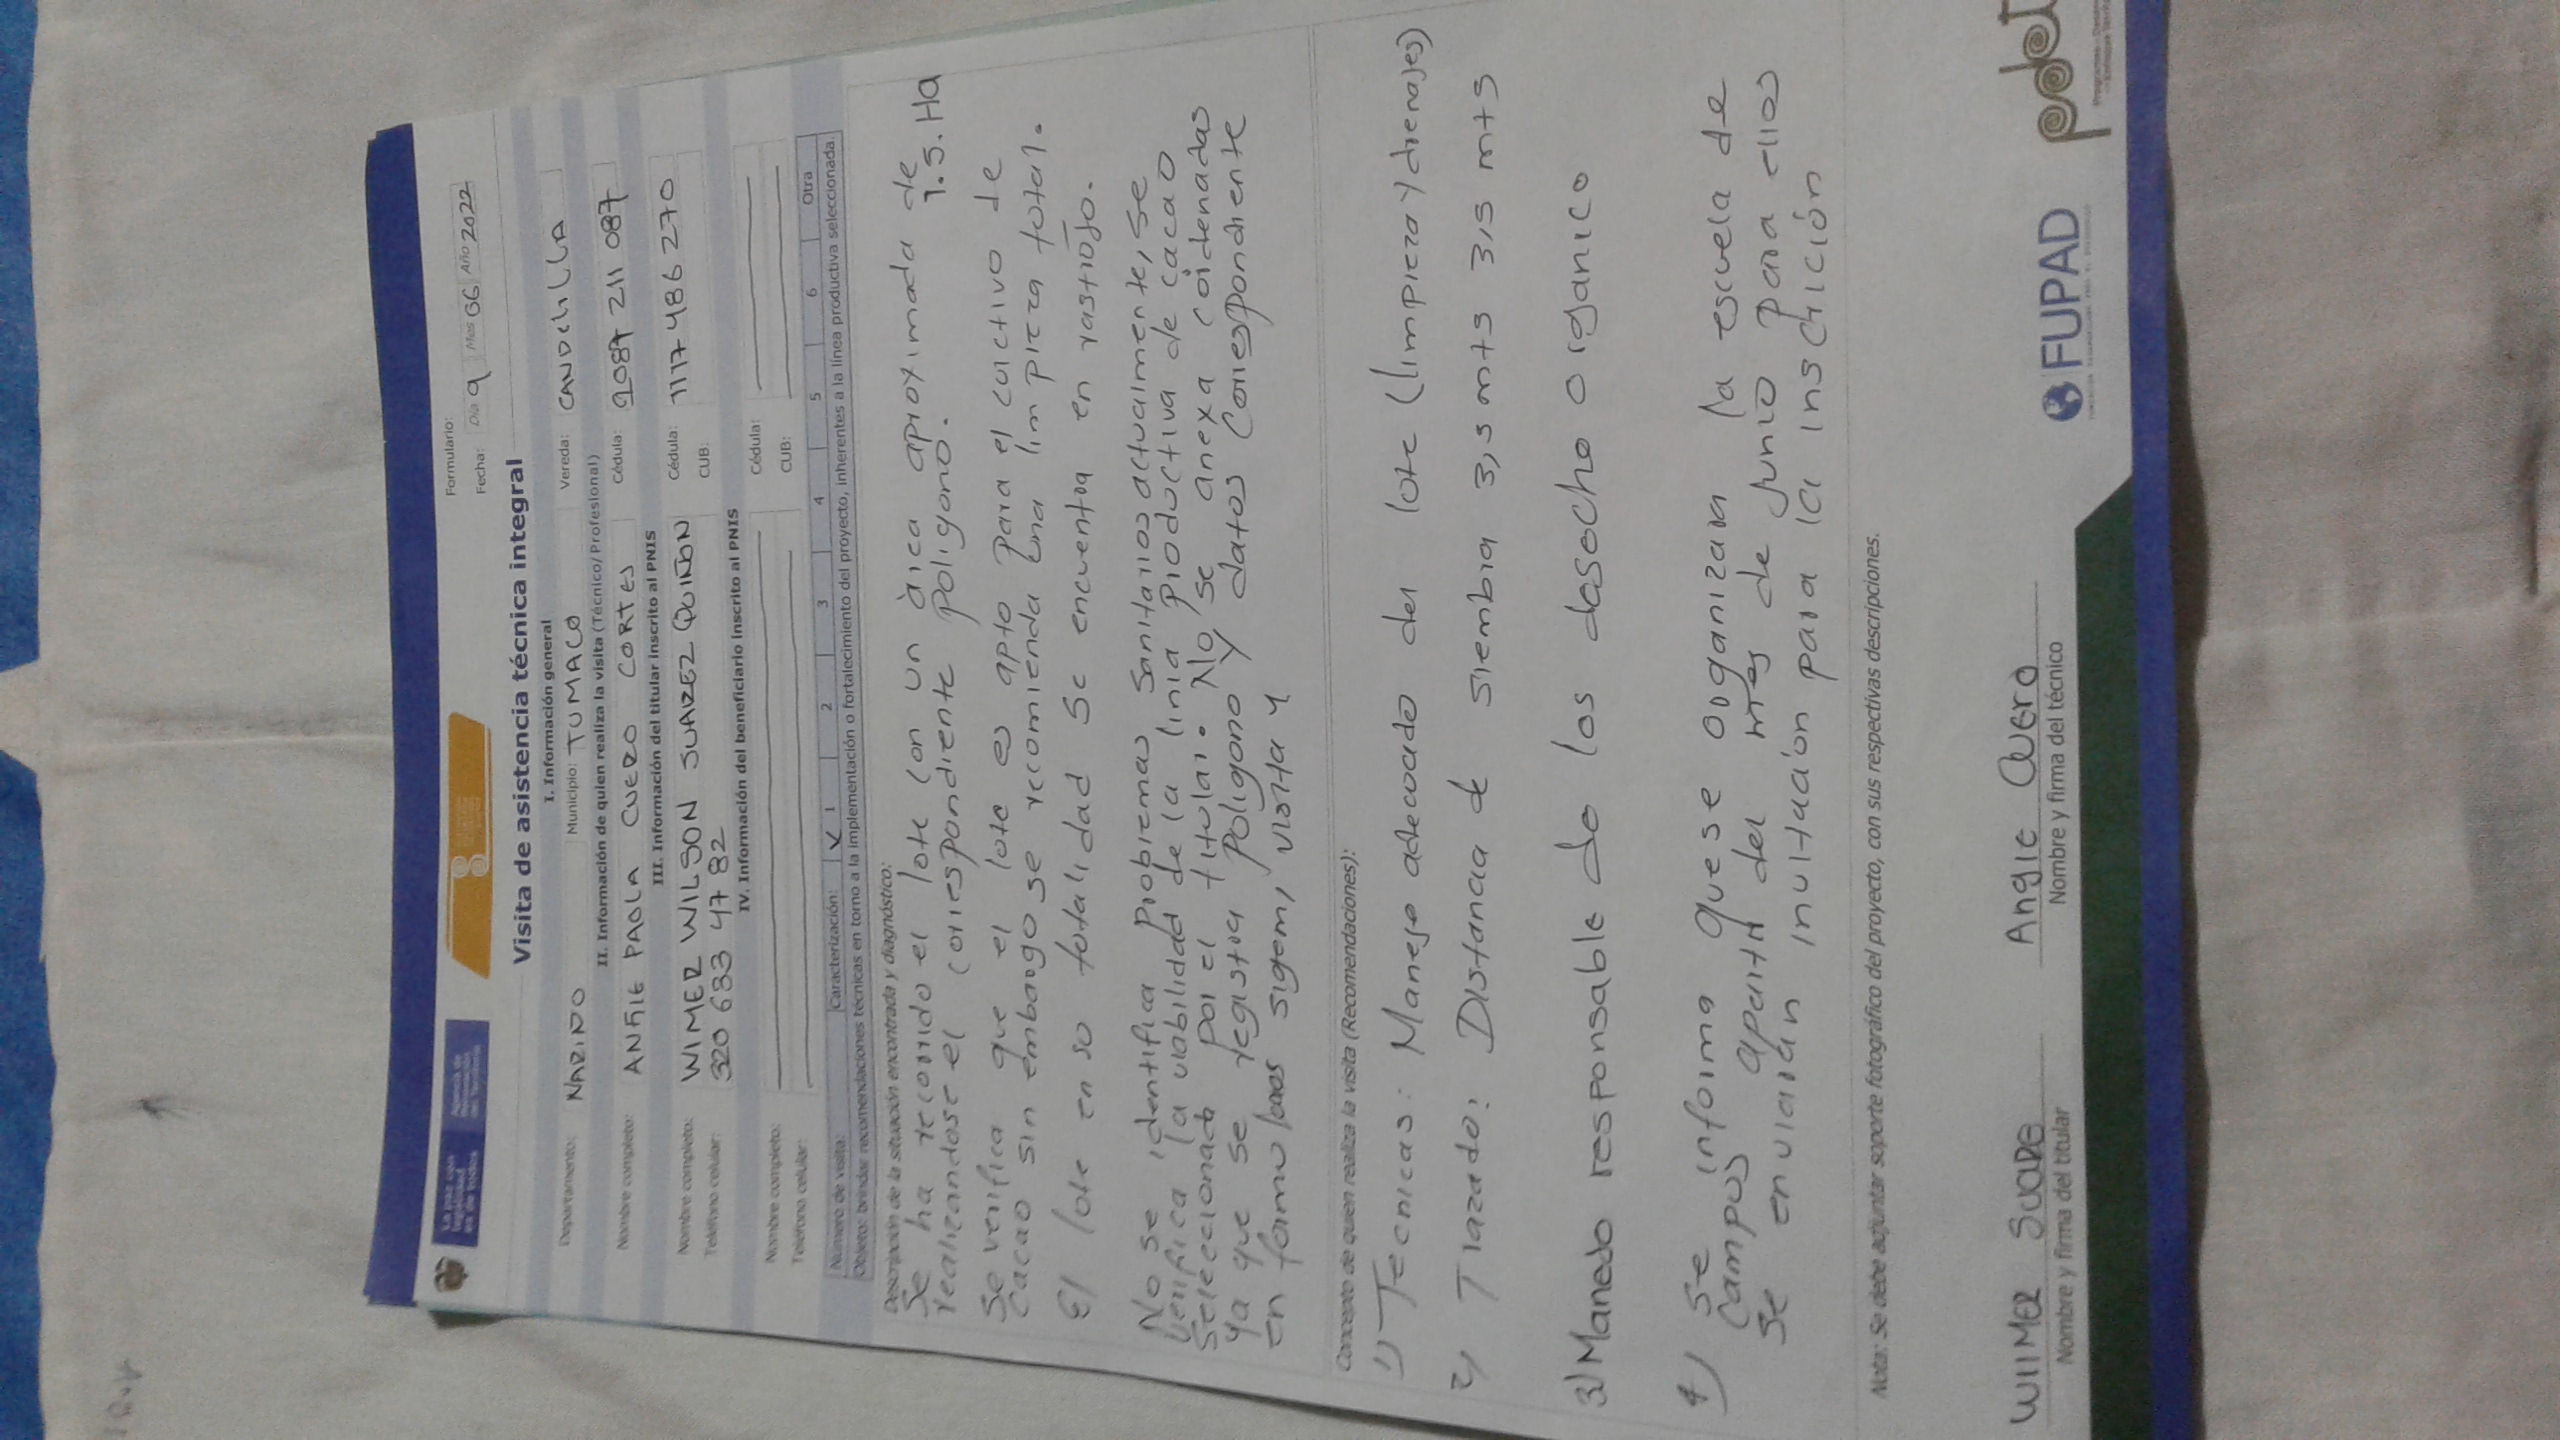 La paz con legalidad es de todos
Agencia de Renovación del Territorio
Formulario:
Fecha: Día 9 Mes 06 Año 2022
Visita de asistencia técnica integral
I. Información general
Departamento: NARIÑO Municipio: TUMACO Vereda: CANDELILLA
II. Información de quien realiza la visita (Técnico/Profesional)
Nombre completo: ANGIE PAOLA CUERO CORTES Cédula: 1087 211 087
III. Información del titular inscrito al PNIS
Nombre completo: WIMER WILSON SUAREZ QUIÑON Cédula: 1117 486 270
Teléfono celular: 320 633 47 82 CUB:
IV. Información del beneficiario inscrito al PNIS
Nombre completo: Cédula:
Teléfono celular: CUB:
Número de visita: Caracterización: 1 2 3 4 5 6 Otra
Objeto: brindar recomendaciones técnicas en torno a la implementación o fortalecimiento del proyecto, inherentes a la línea productiva seleccionada.
Descripción de la situación encontrada y diagnóstico:
Se ha recorrido el lote con un àrea aproximada de 1.5. Ha
realizandose el correspondiente poligono.
Se verifica que el lote es apto para el cultivo de
cacao sin embargo se recomienda una limpieza total.
El lote en so totalidad se encuentra en rastrojo.
No se identifica problemas Sanitarios actualmente, se
verifica la viabilidad de la linia productiva de cacao
seleccionado por el titular. No se anexa coordenadas
ya que se registra Poligono y datos Correspondiente
en formularios sigem, visita 4
Concepto de quien realiza la visita (Recomendaciones):
1) Tecnicas: Manejo adecuado del lote (limpieza y drenajes)
2) Trazado: Distancia de siembra 3,5 mts 3,5 mts
3) Manedo responsable de los desecho Organico
4) Se informa que se organizara la escuela de
campos apartir del mes de Junio para ellos
se enviarán invitación para la inscrición
Nota: Se debe adjuntar soporte fotográfico del proyecto, con sus respectivas descripciones.
WIIMER SUARE Angie Cuero
Nombre y firma del titular Nombre y firma del técnico
FUPAD
pdet